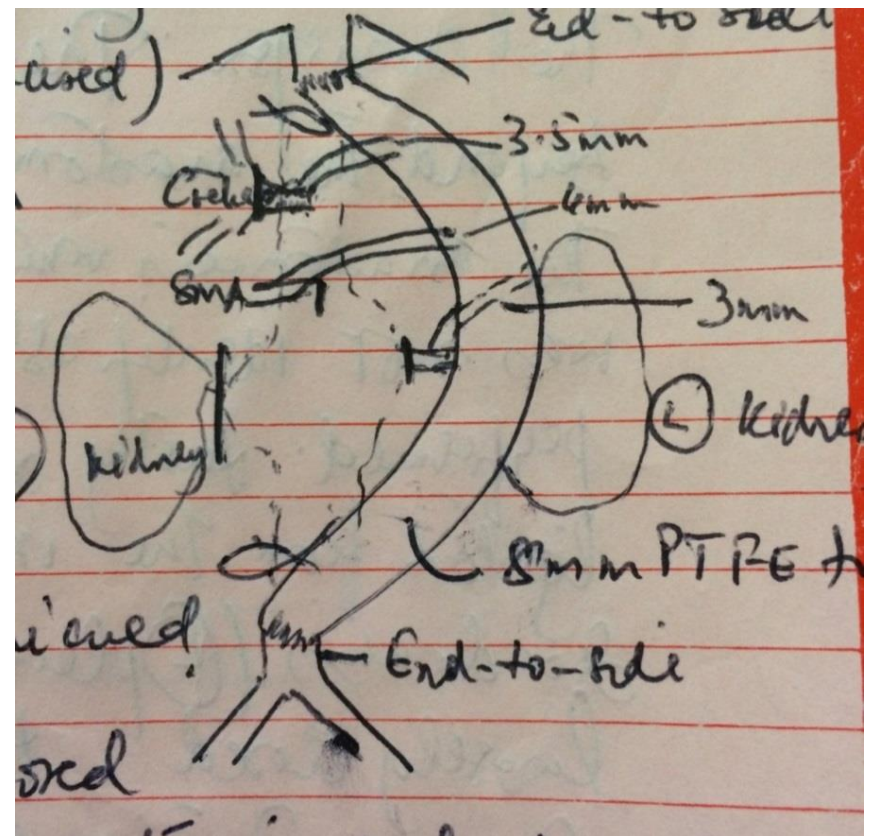 End-to side
3.5mm
Coeliac
4mm
SMA
3mm
Kidney
L Kidney
8mm PTFE
End-to-side